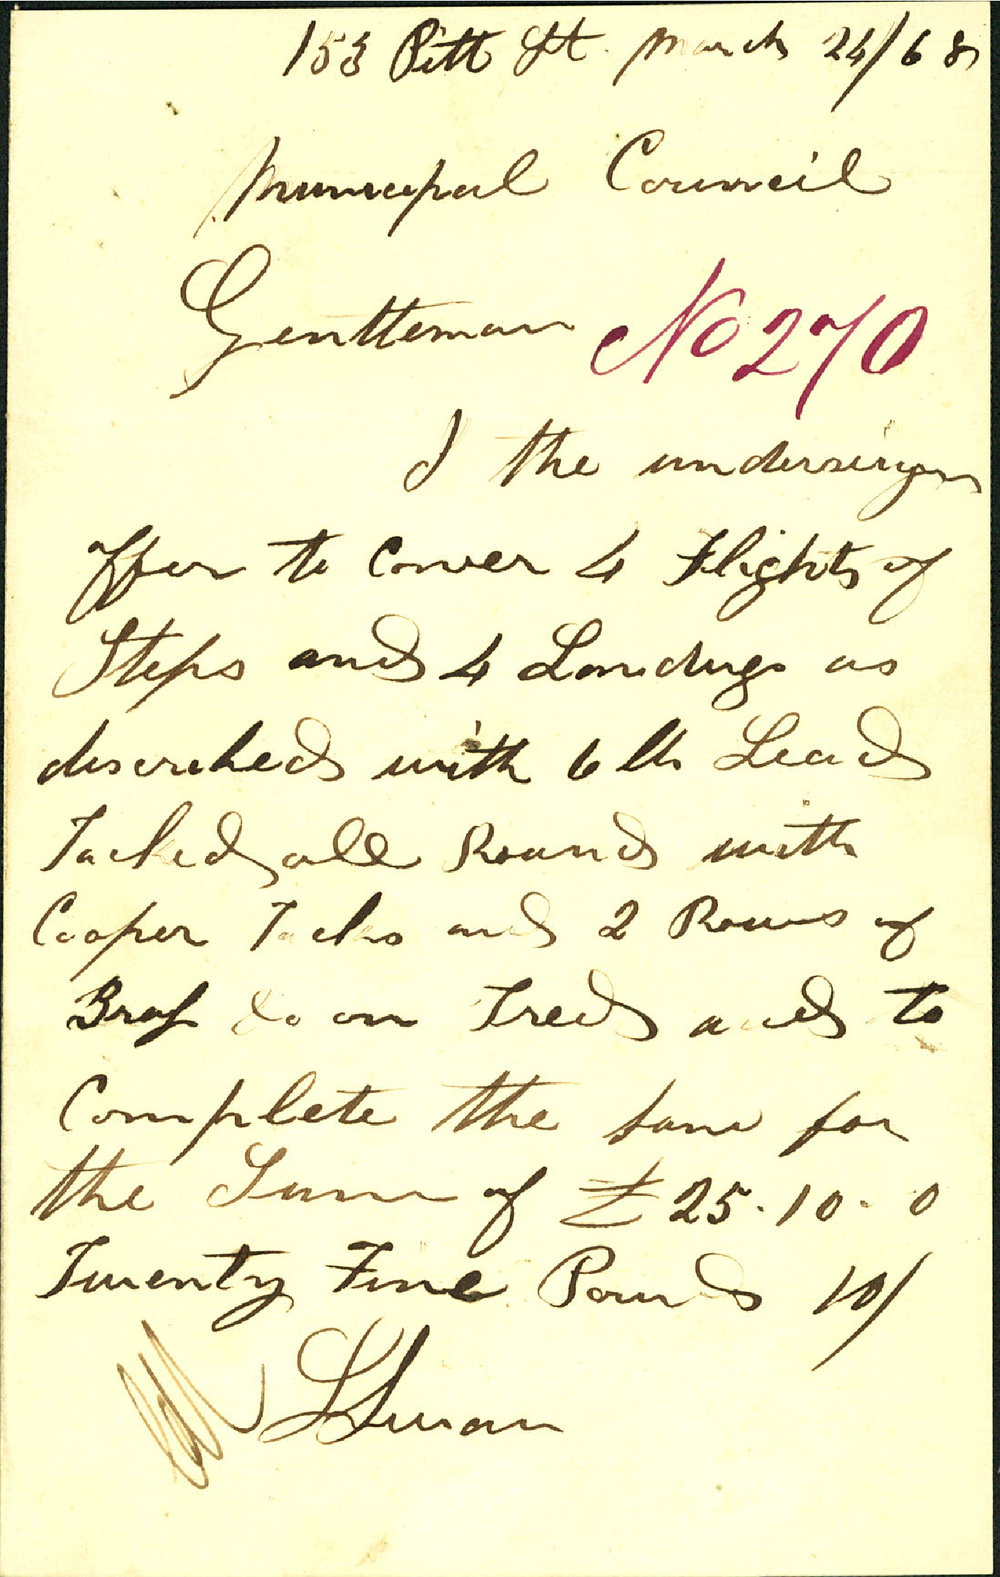 153 Pitt St. March 24/68
Municipal Council
Gentleman No 270
I the undersign
offer to Cover 4 Flights of
Steps and 4 Landings as
discribed with 6 lb Lead
Tacked all Round with
Cooper Tacks and 2 Rows of
Brass do on Tred and to
Complete the same for
the Sum of £25.10.0
Twenty Five Pounds 10/
Swan